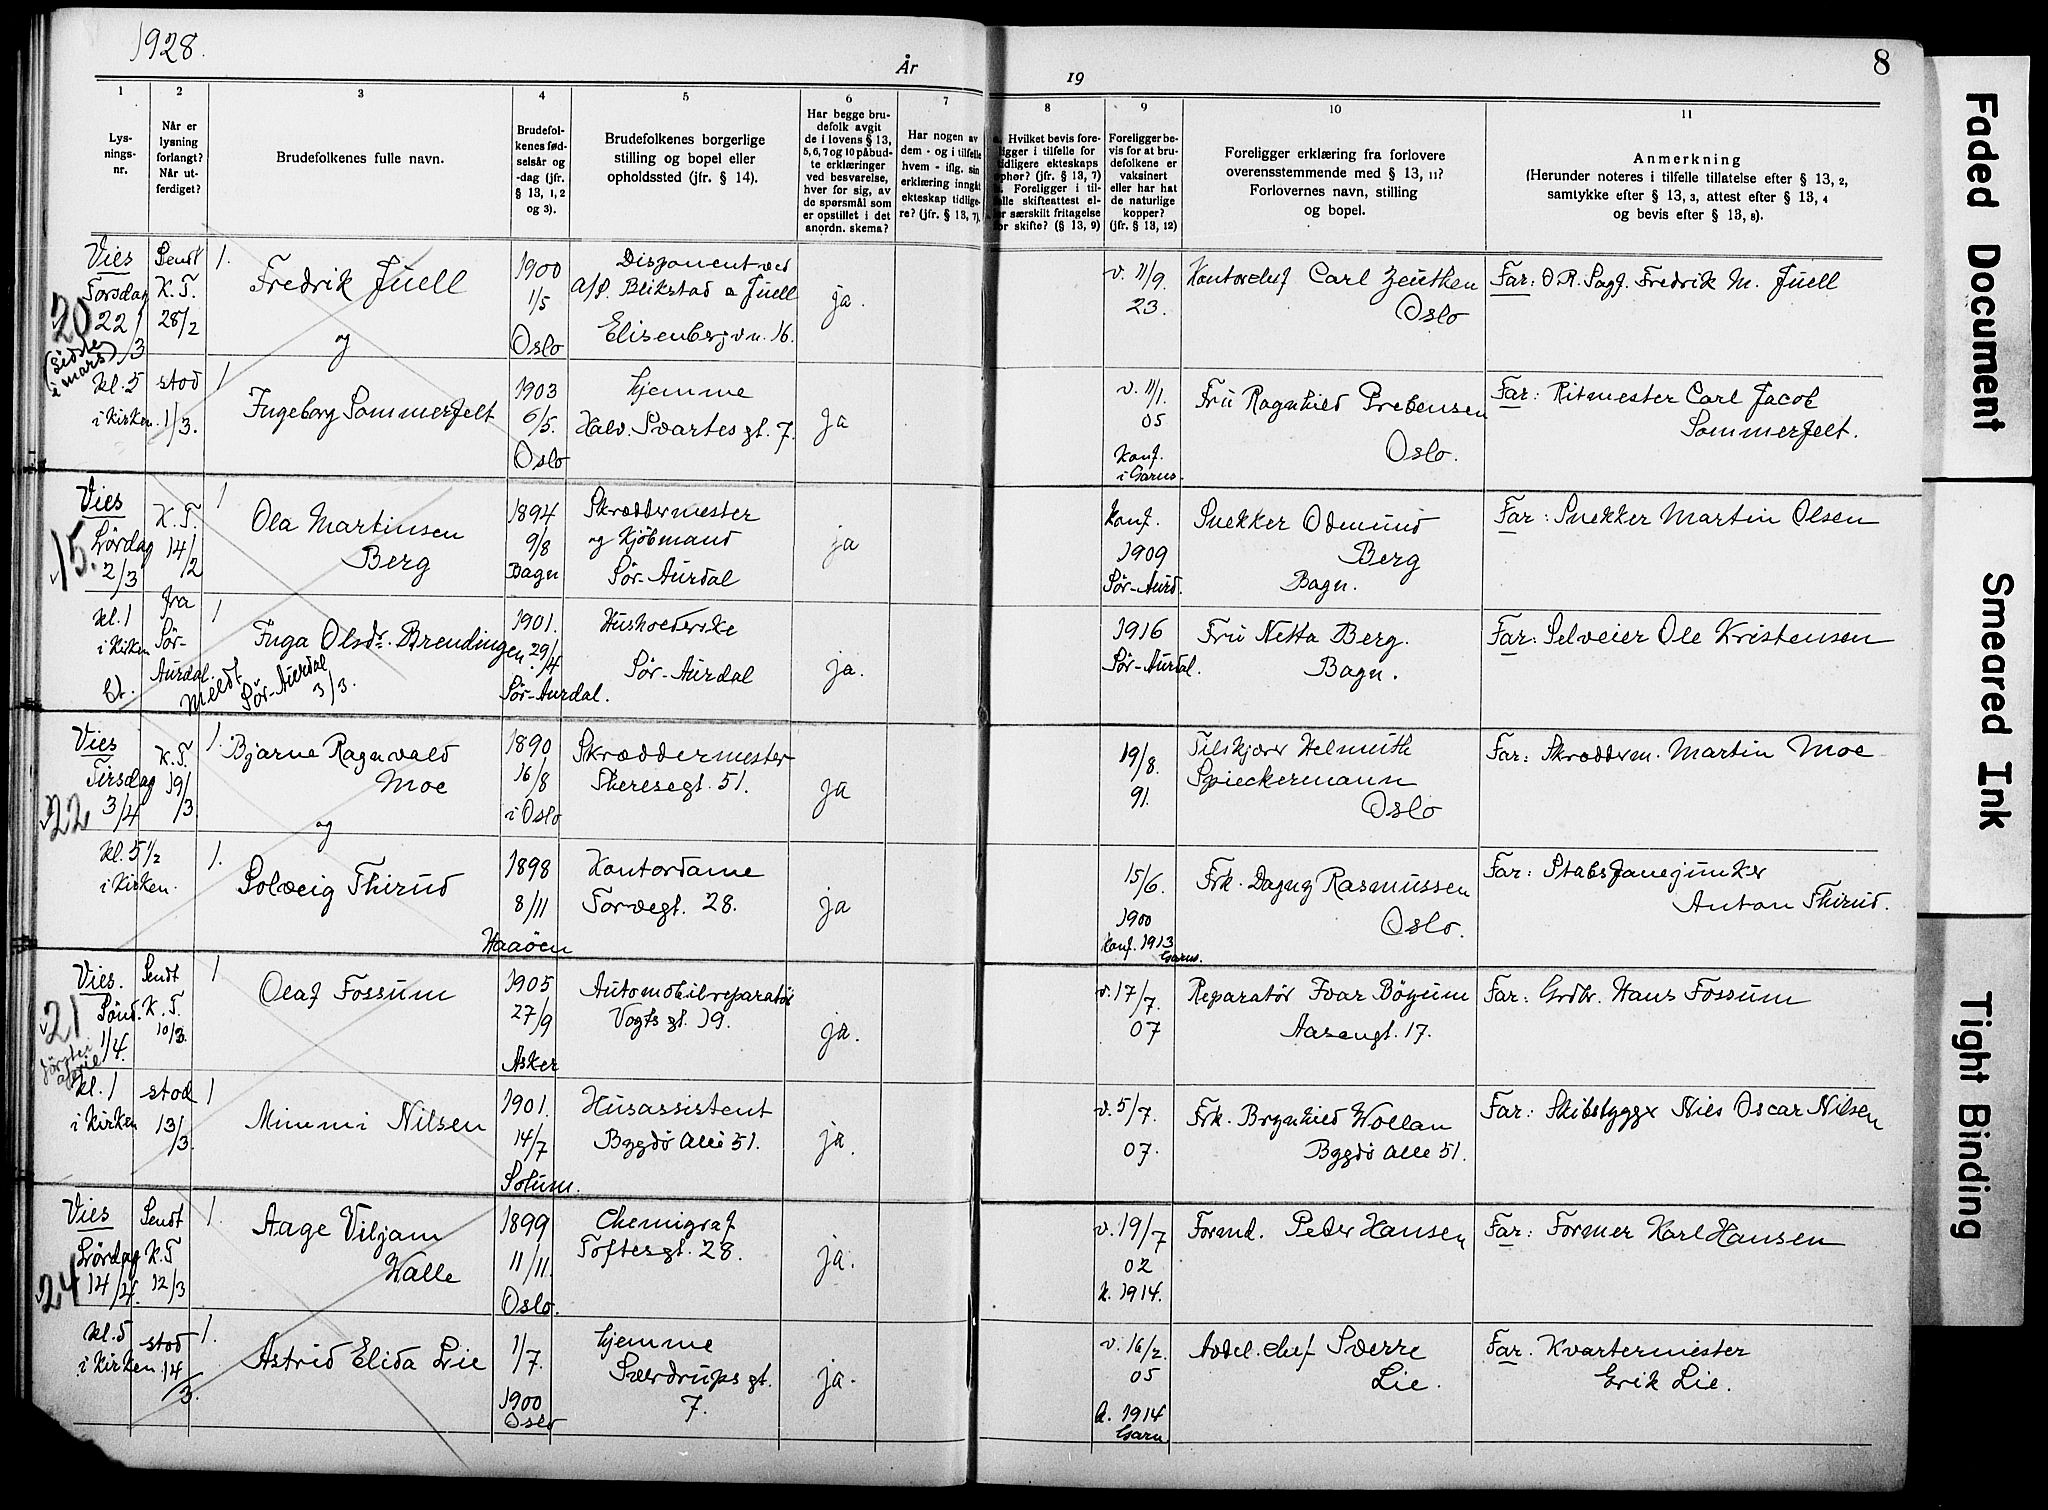 1928.
År
19
8
1
2
3
4
5
6
7
8
9
10
11
Lys-
nings-
nr.
Når er
lysning
forlangt?
Når ut-
ferdiget?
Brudefolkenes fulle navn.
Brudefol-
kenes fød-
selsår og
-dag (jfr.
§ 13, 1, 2
og 3).
Brudefolkenes borgerlige
stilling og bopel eller
opholdssted (jfr. § 14).
Har begge bru-
defolk avgit
de i lovens § 13,
5, 6, 7 og 10 påbud-
te erklæringer
ved besvarelse,
hver for sig, av
de spørsmål som
er opstillet i det
anordn. skema?
Har nogen av
dem - og i tilfelle
hvem - iflg. sin
erklæring inngåt
ekteskap tidlige-
re? (jfr. § 13, 7).
a. Hvilket bevis fore-
ligger i tilfelle for
tidligere ekteskaps
ophør? (jfr. § 13, 7)
b. Foreligger i til-
felle skifteattest el-
ler særskilt fritagelse
for skifte? (§ 13, 9)
Foreligger be-
vis for at bru-
defolkene er
vaksinert
eller har hat
de naturlige
kopper?
(jfr. § 13, 12)
Foreligger erklæring fra forlovere
overensstemmende med § 13, 11?
Forlovernes navn, stilling
og bopel.
Anmerkning
(Herunder noteres i tilfelle tillatelse efter § 13, 2,
samtykke efter § 13, 3, attest efter § 13, 4
og bevis efter § 13, 8).
20
Vies
Torsdag
22/3
(sidste
i mars)
Sendt
K.T.
28/2
1.
Fredrik Juell
og
1900
1/5
Oslo
Disponent ved
a/s. Blikstad & Juell
Elisenbergvn. 16.
ja.
v. 11/9.
23.
Kontorchef Carl Zeuthen
Oslo
Far: O.R. Sagf. Fredrik M. Juell
kl. 5
i Kirken.
stod
1/3.
1
Ingeborg Sommerfelt
1903
6/5.
Oslo
hjemme
Halv. Svartes gt. 7.
ja
v. 11/1.
05
Konf.
i Garns.
Fru Ragnhild Prebensen
Oslo.
Far: Ritmester Carl Jacob
Sommerfelt.
15.
Vies
Lördag
2/3
K.T.
14/2
1
Ola Martinsen
Berg
1894
9/8
Bagn
Skræddermester
og Kjöbmand
Sör-Aurdal
ja
Konf.
1909
Sör-Aurd.
Snekker Odmund
Berg
Bagn.
Far: Snekker Martin Olsen
kl. 1
i Kirken
fra
Sör-
Aurdal.
1
Inga Olsdr. Brendingen
Meldt
Sör-Aurdal
3/3.
1901.
29/4
Sör-Aurdal.
Husholderske
Sör-Aurdal
ja.
1916
Sör-Aurdal.
Fru Netta Berg.
Bagn.
Far: Selveier Ole Kristensen
22
Vies
Tirsdag
3/4
K.T.
19/3
1.
Bjarne Ragnvald
Moe
og
1890
16/8
i Oslo
Skræddermester
Theresegt. 51.
ja
19/8.
91.
Tilskjærer Helmuth
Spieckermann
Oslo
Far: Skrædderm. Martin Moe
kl. 5 1/2
i Kirken.
1.
Solveig Thirud
1898
8/11
Haaöen
Kontordame
Torvegt. 28.
ja
15/6.
1900
Konf. 1913
Garns.
Frk. Dagny Rasmussen
Oslo.
Far: Stabsfanejunker
Anton Thirud.
21
Vies.
Sönd.
1/4.
Sendt
K.T.
10/3.
1
Olaf Fossum
1905
27/9
Asker
Automobilreparatör
Vogts gt. 19.
ja.
v. 17/7.
07
Reparatör Ivar Böyum
Aasengt. 17.
Far: Grdbr. Hans Fossum
kl. 1
i Kirken
stod
13/3.
1
Mimmi Nilsen
1901.
14/7
Solum.
Husassistent
Bygdö Allé 51.
ja.
v. 5/7.
07.
Frk. Brynhild Wollan
Bygdö Allé 51.
Far: Skibsbygger Nils Oscar Nilsen
24
Vies
Lördag
14/4.
Sendt
K.T
12/3
1.
Aage Viljam
Walle
1899
11/11.
Oslo.
Chemigraf
Toftesgt. 28.
ja.
v. 19/7
02
K. 1914.
Formd. Peder Hansen
Far: Former Karl Hansen
kl. 5
i Kirken
stod
14/3.
1.
Astrid Elida Lie
1/7.
1900
Oslo
hjemme
Sverdrups gt.
7.
ja.
v. 16/2.
05
K. 1914
Garn.
Avdel. chef Sverre
Lie.
Far. Kvartermester
Erik Lie.
Faded Document
Smeared Ink
Tight Binding